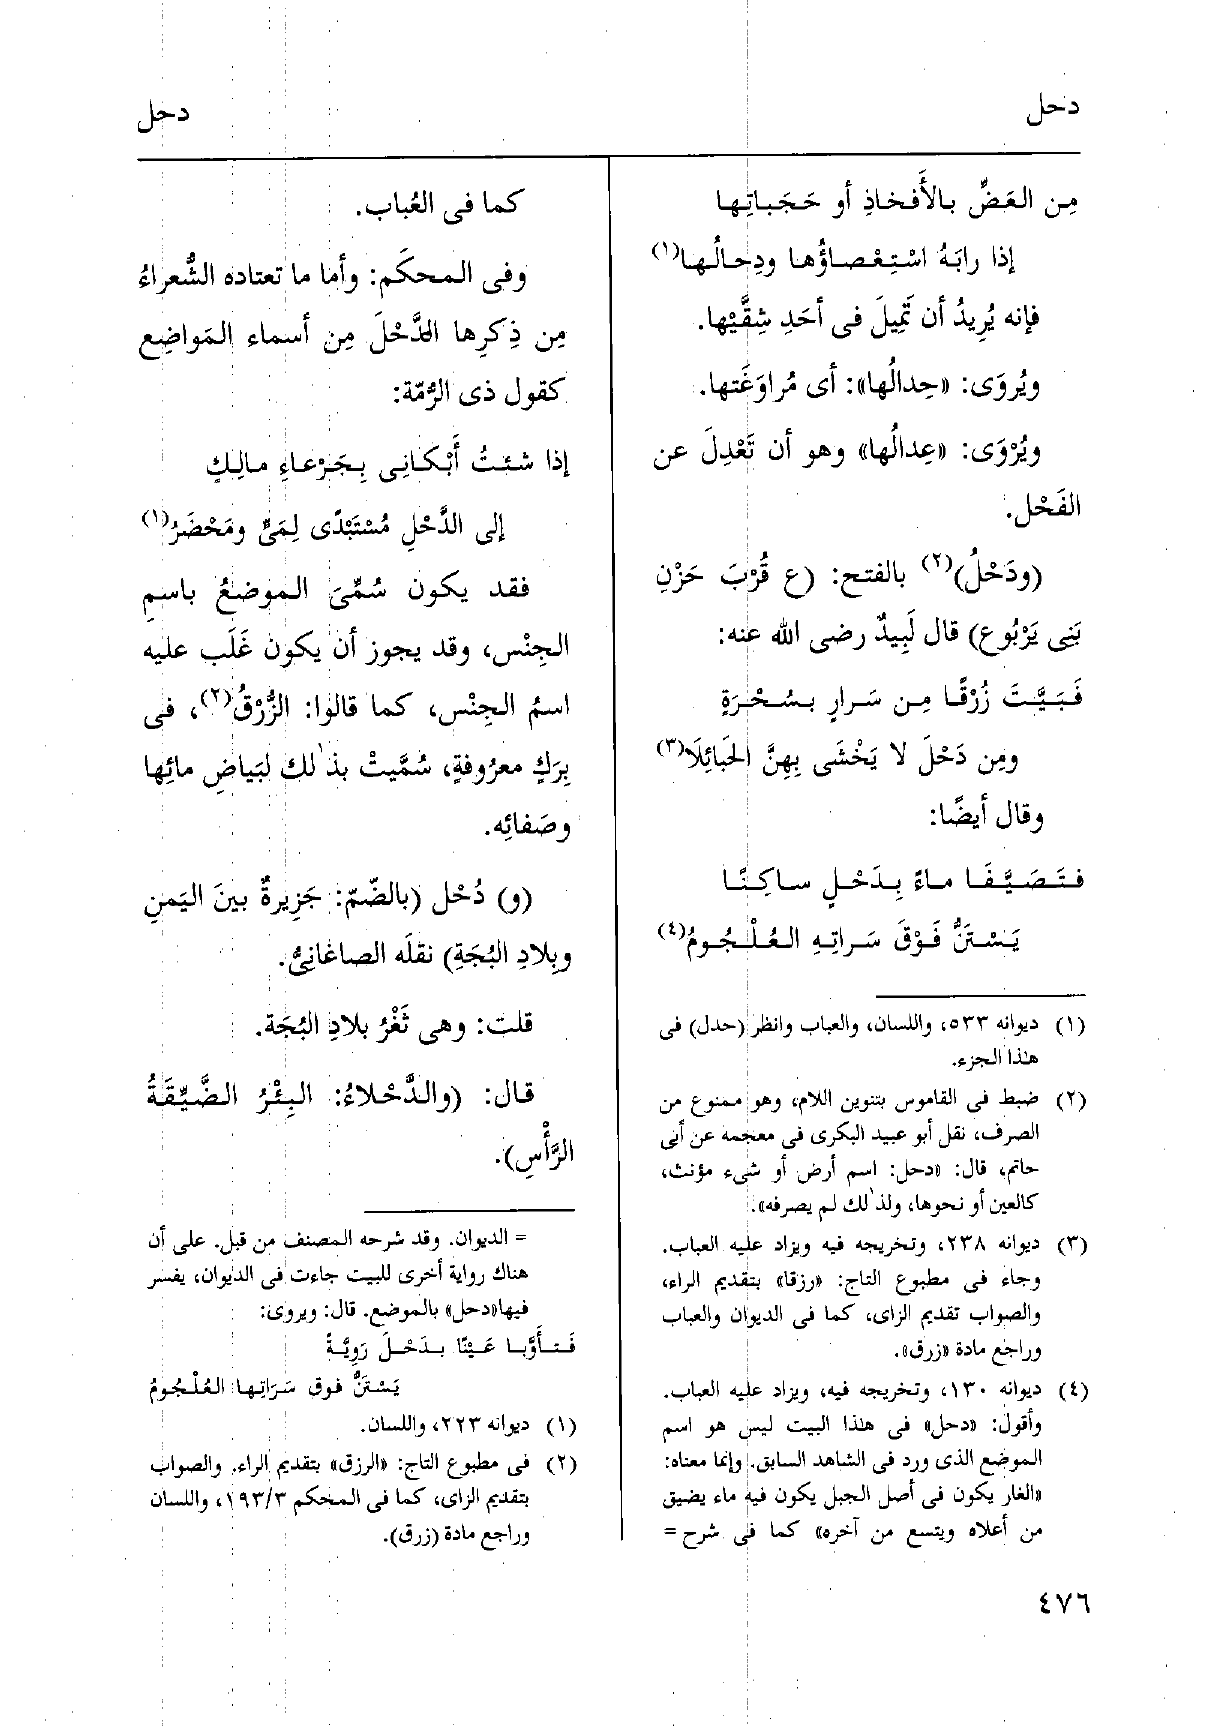 دحل
دحل
مِن العَضِّ بالأَفخاذِ أو حَجَباتِها
إذا رابَهُ اسْتِعْصاؤُها ودِحالُها(١)
فإنه يُرِيدُ أن تَمِيلَ فى أحَدِ شِقَّيْها.
ويُروَى: «حِدالُها»: أى مُراوَغَتها.
ويُرْوَى: «عِدالُها» وهو أن تَعْدِلَ عن
الفَحْل.
(ودَحْلُ)(٢) بالفتح: (ع قُرْبَ حَزْنِ
بَنِى يَرْبُوع) قال لَبِيدٌ رضى الله عنه:
فَبَيَّتَ زُرْقًا مِن سَرارٍ بسُحْرَةٍ
ومِن دَحْلَ لا يَخْشَى بِهِنَّ الحَبائِلَا(٣)
وقال أيضًا:
فتَصَيَّفَا ماءً بِدَحْلٍ ساكِنًا
يَسْتَنُّ فَوْقَ سَراتِهِ العُلْجُومُ(٤)
(١) ديوانه ٥٣٣، واللسان، والعباب وانظر (حدل) فى
هٰذا الجزء.
(٢) ضبط فى القاموس بتنوين اللام، وهو ممنوع من
الصرف، نقل أبو عبيد البكرى فى معجمه عن أبى
حاتم، قال: «دحل: اسم أرض أو شىء مؤنث،
كالعين أو نحوها، ولذٰلك لم يصرفه».
(٣) ديوانه ٢٣٨، وتخريجه فيه ويزاد عليه العباب.
وجاء فى مطبوع التاج: «رزقا» بتقديم الراء،
والصواب تقديم الزاى، كما فى الديوان والعباب
وراجع مادة «زرق».
(٤) ديوانه ١٣٠، وتخريجه فيه، ويزاد عليه العباب.
وأقول: «دحل» فى هٰذا البيت ليس هو اسم
الموضع الذى ورد فى الشاهد السابق. وإنما معناه:
«الغار يكون فى أصل الجبل يكون فيه ماء يضيق
من أعلاه ويتسع من آخره» كما فى شرح =
كما فى العُباب.
وفى المحكَم: وأما ما تعتاده الشُّعراءُ
مِن ذِكرِها الدَّحْلَ مِن أسماء المَواضِع
كقول ذى الرُّمّة:
إذا شئتُ أَبْكانِى بِجَرْعاءِ مالِكٍ
إلى الدَّحْلِ مُسْتَبْدًى لِمَىٍّ ومَحْضَرُ(١)
فقد يكون سُمِّىَ الموضعُ باسمِ
الجِنْس، وقد يجوز أن يكون غَلَب عليه
اسمُ الجِنْس، كما قالوا: الزُّرْقُ(٢)، فى
بِرَكٍ معرُوفةٍ، سُمِّيتْ بذٰلك لبَياضِ مائِها
وصَفائِه.
(و) دُحْل (بالضّمّ: جَزِيرةٌ بينَ اليَمنِ
وبِلادِ البُجَةِ) نقلَه الصاغانِىُّ.
قلت: وهى ثَغْرُ بلادِ البُجَة.
قال: (والدَّحْلاءُ: البِئْرُ الضَّيِّقَةُ
الرَّأْسِ).
= الديوان. وقد شرحه المصنف من قبل. على أن
هناك رواية أخرى للبيت جاءت فى الديوان، يفسر
فيها«دحل» بالموضع. قال: ويروى:
فَتأَوَّبا عَيْنًا بدَحْلَ رَوِيَّةً
يَسْتَنُّ فوق سَرَاتِها العُلْجُومُ
(١) ديوانه ٢٢٣، واللسان.
(٢) فى مطبوع التاج: «الرزق» بتقديم الراء. والصواب
بتقديم الزاى، كما فى المحكم ١٩٣/٣، واللسان
وراجع مادة (زرق).
٤٧٦